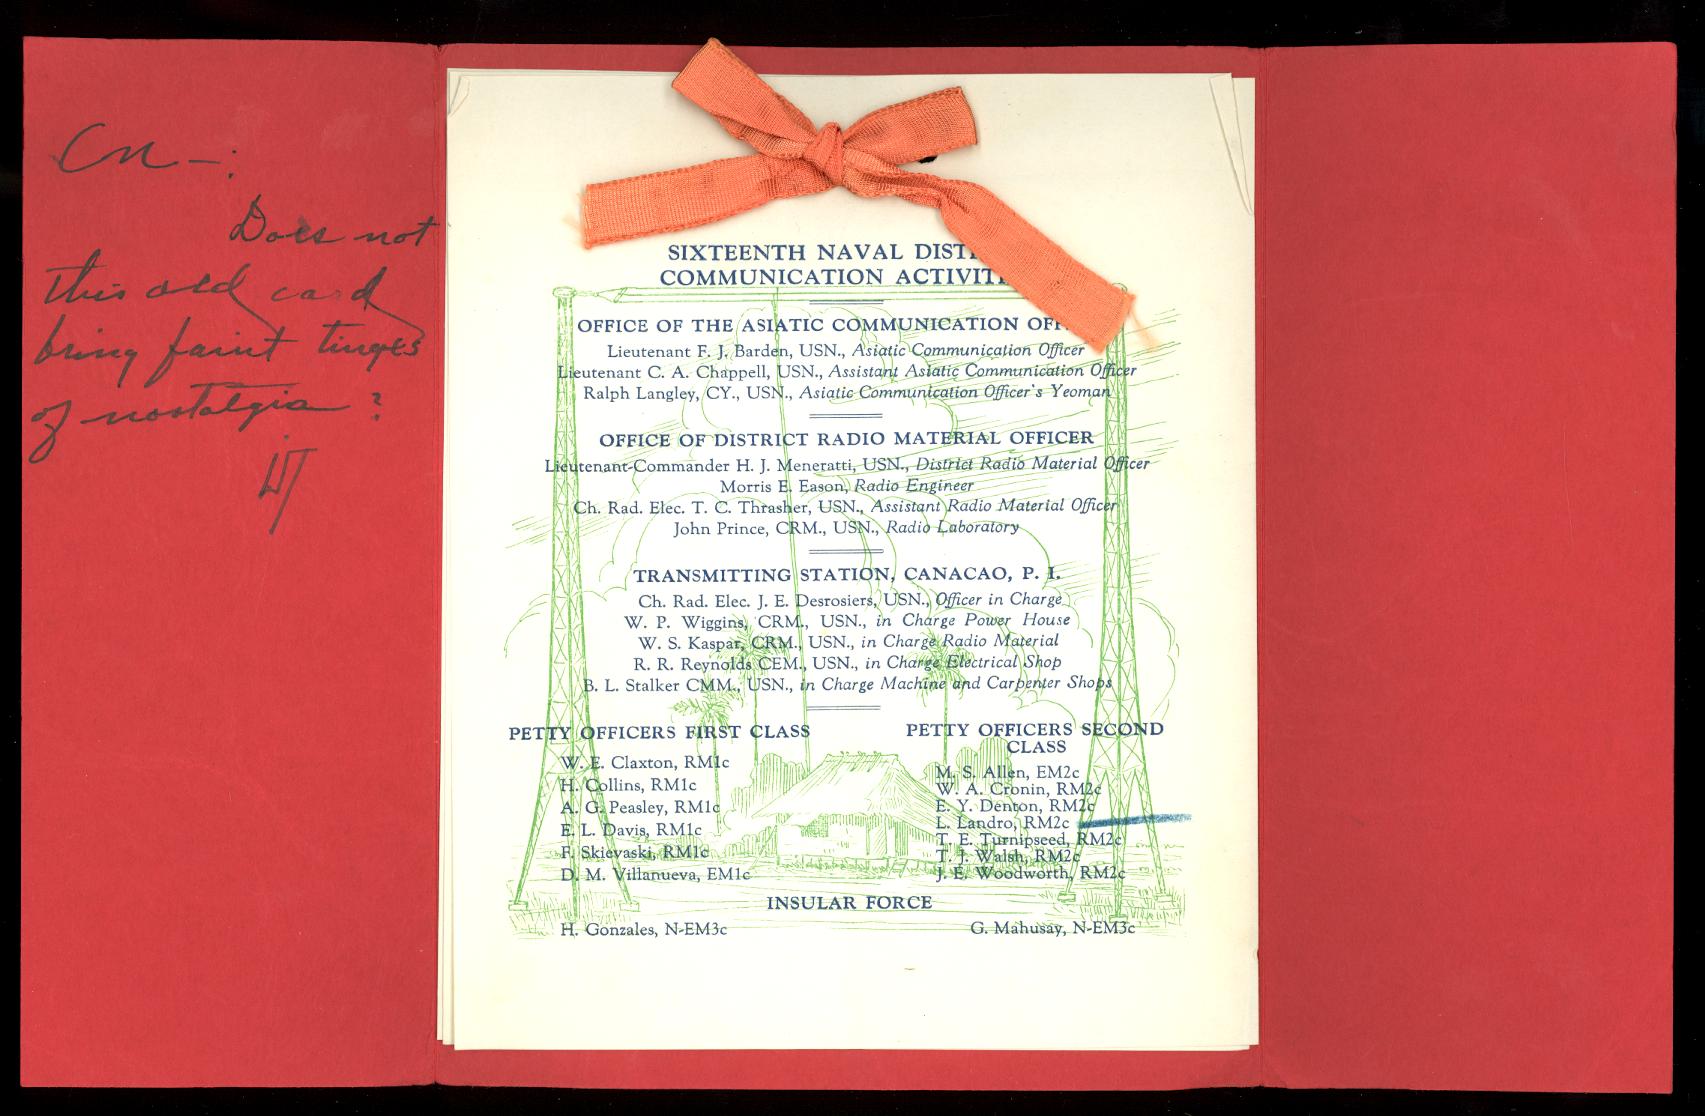 Cn -:
Does not
this old card
bring faint tinges
of nostalgia?
SIXTEENTH NAVAL DIST
COMMUNICATION ACTIVIT
OFFICE OF THE ASIATIC COMMUNICATION OFF
Lieutenant F. J. Barden, USN., Asiatic Communication Officer
Lieutenant C. A. Chappell, USN., Assistant Asiatic Communication Officer
Ralph Langley, CY., USN., Asiatic Communication Officer's Yeoman
OFFICE OF DISTRICT RADIO MATERIAL OFFICER
Lieutenant-Commander H. J. Meneratti, USN., District Radio Material Officer
Morris E. Eason, Radio Engineer
Ch. Rad. Elec. T. C. Thrasher, USN., Assistant Radio Material Officer
John Prince, CRM., USN., Radio Laboratory
TRANSMITTING STATION, CANACAO, P. I.
Ch. Rad. Elec. J. E. Desrosiers, USN., Officer in Charge
W. P. Wiggins, CRM., USN., in Charge Power House
W. S. Kaspar, CRM., USN., in Charge Radio Material
R. R. Reynolds CEM., USN., in Charge Electrical Shop
B. L. Stalker CMM., USN., in Charge Machine and Carpenter Shops
PETTY OFFICERS FIRST CLASS
W. E. Claxton, RM1c
H. Collins, RM1c
A. G. Peasley, RM1c
E. L. Davis, RM1c
F. Skievaski, RM1c
D. M. Villanueva, EM1c
PETTY OFFICERS SECOND
CLASS
M. S. Allen, EM2c
W. A. Cronin, RM2c
E. Y. Denton, RM2c
L. Landro, RM2c
T. E. Turnipseed, RM2c
T. J. Walsh, RM2c
J. E. Woodworth, RM2c
INSULAR FORCE
H. Gonzales, N-EM3c
G. Mahusay, N-EM3c